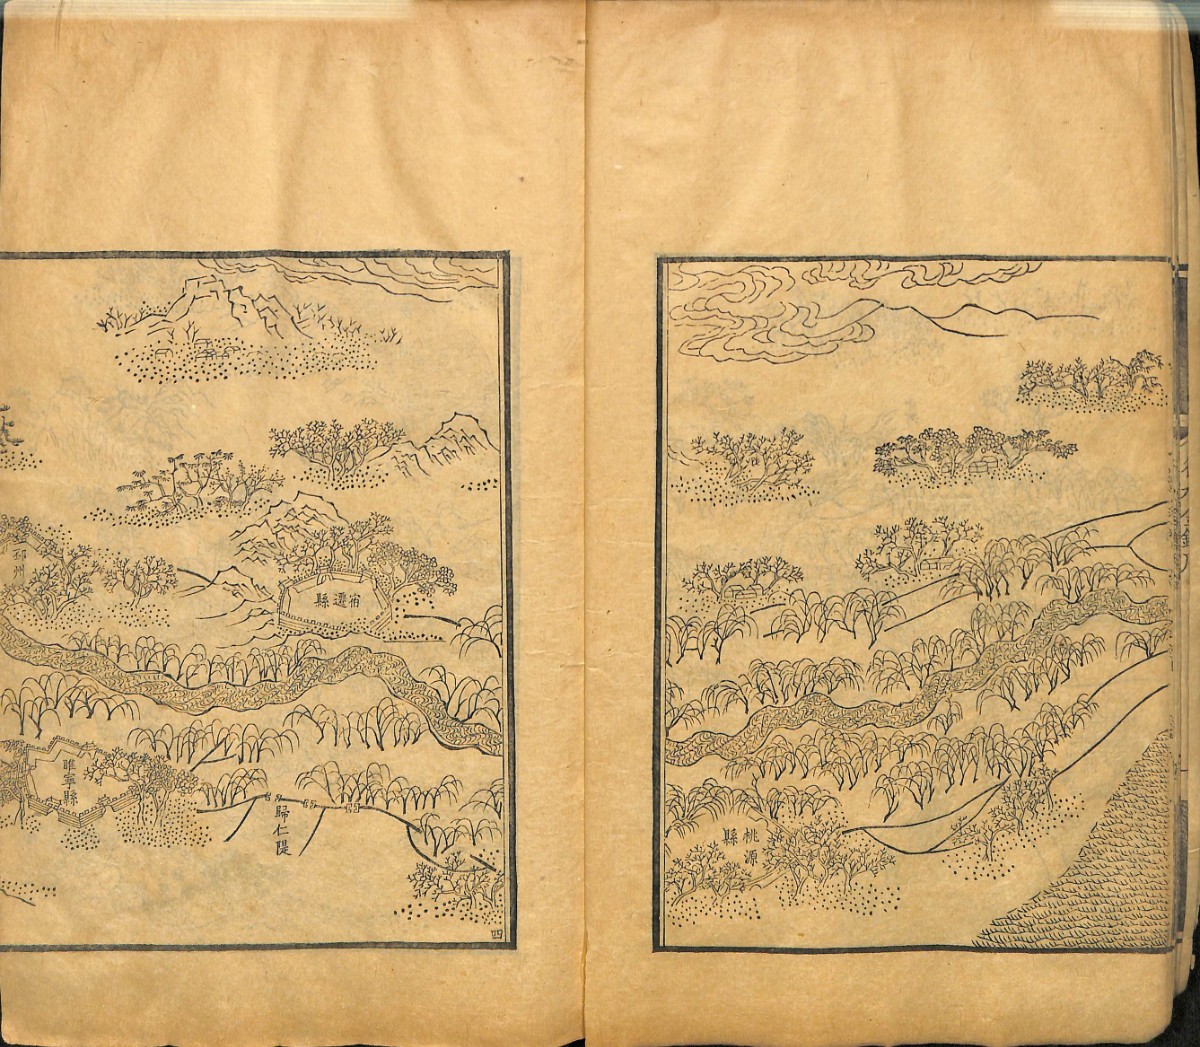 桃源
縣
宿遷縣
邳州
睢寧縣
歸仁隄
四